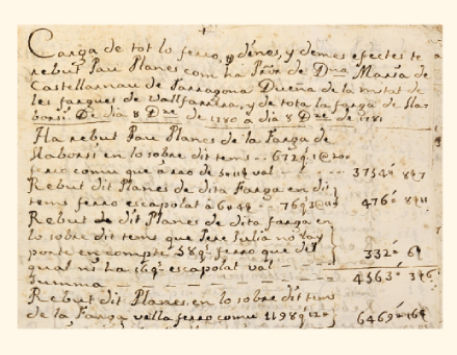 Carga de tot lo ferro, y dines, y demes efectes te
rebut Pau Planes com ha Pror de Dna Maria de
Castellarnau de Tarragona Dueña de la mitat de
les fargues de Vallfarrera, y de tota la farga de Sla
borsi. De dia 8 Dre de 1780 a dia 8 Dre de 1781
Ha rebut Pau Planes de la Farga de
Slaborsi en lo sobre dit tems
ferro comu que à rao de val 3754
Rebut dit Planes de dita Farga en dit
tems ferro escapolat à 476
Rebut dit Planes de dita farga en
lo sobre dit tems que Pere Julia no lay
porte en compte 58q ferro que del
qual ni ha 16q escapolat val 332
Summa 4563
Rebut dit Planes, en lo sobre dit tems
de la Farga vella ferro comu 1198q 6469